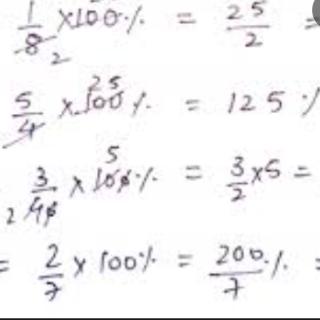 1/8 2 × 100% = 25/2 =
5/4 × 100 25 % = 125 %
3/40 2 × 100 5 % = 3/2 × 5 =
= 2/7 × 100% = 200/7 % =